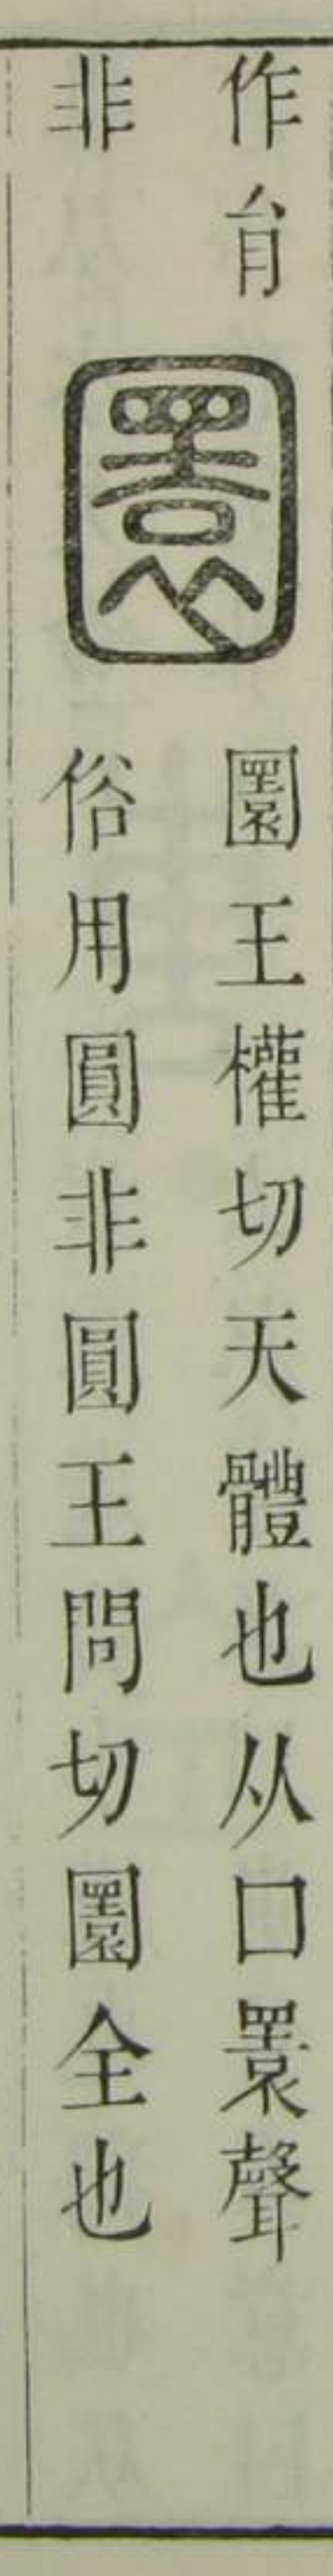 作
非
圜
圜王權切天體也从囗瞏聲
俗用圓非圓王問切圜全也